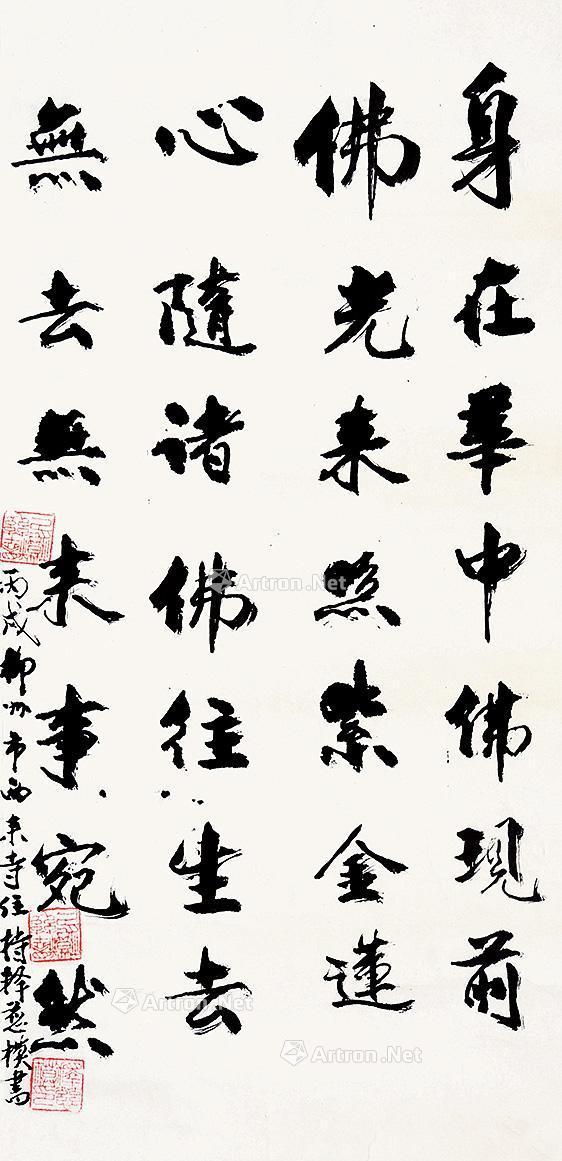 身在華中佛現前
佛光来照紫金蓮
心隨诸佛往生去
無去無来事宛然
丙戌柳州市西来寺住持释慧模書
Artron.Net
Artron.Net
Artron.Net
Artron.Net